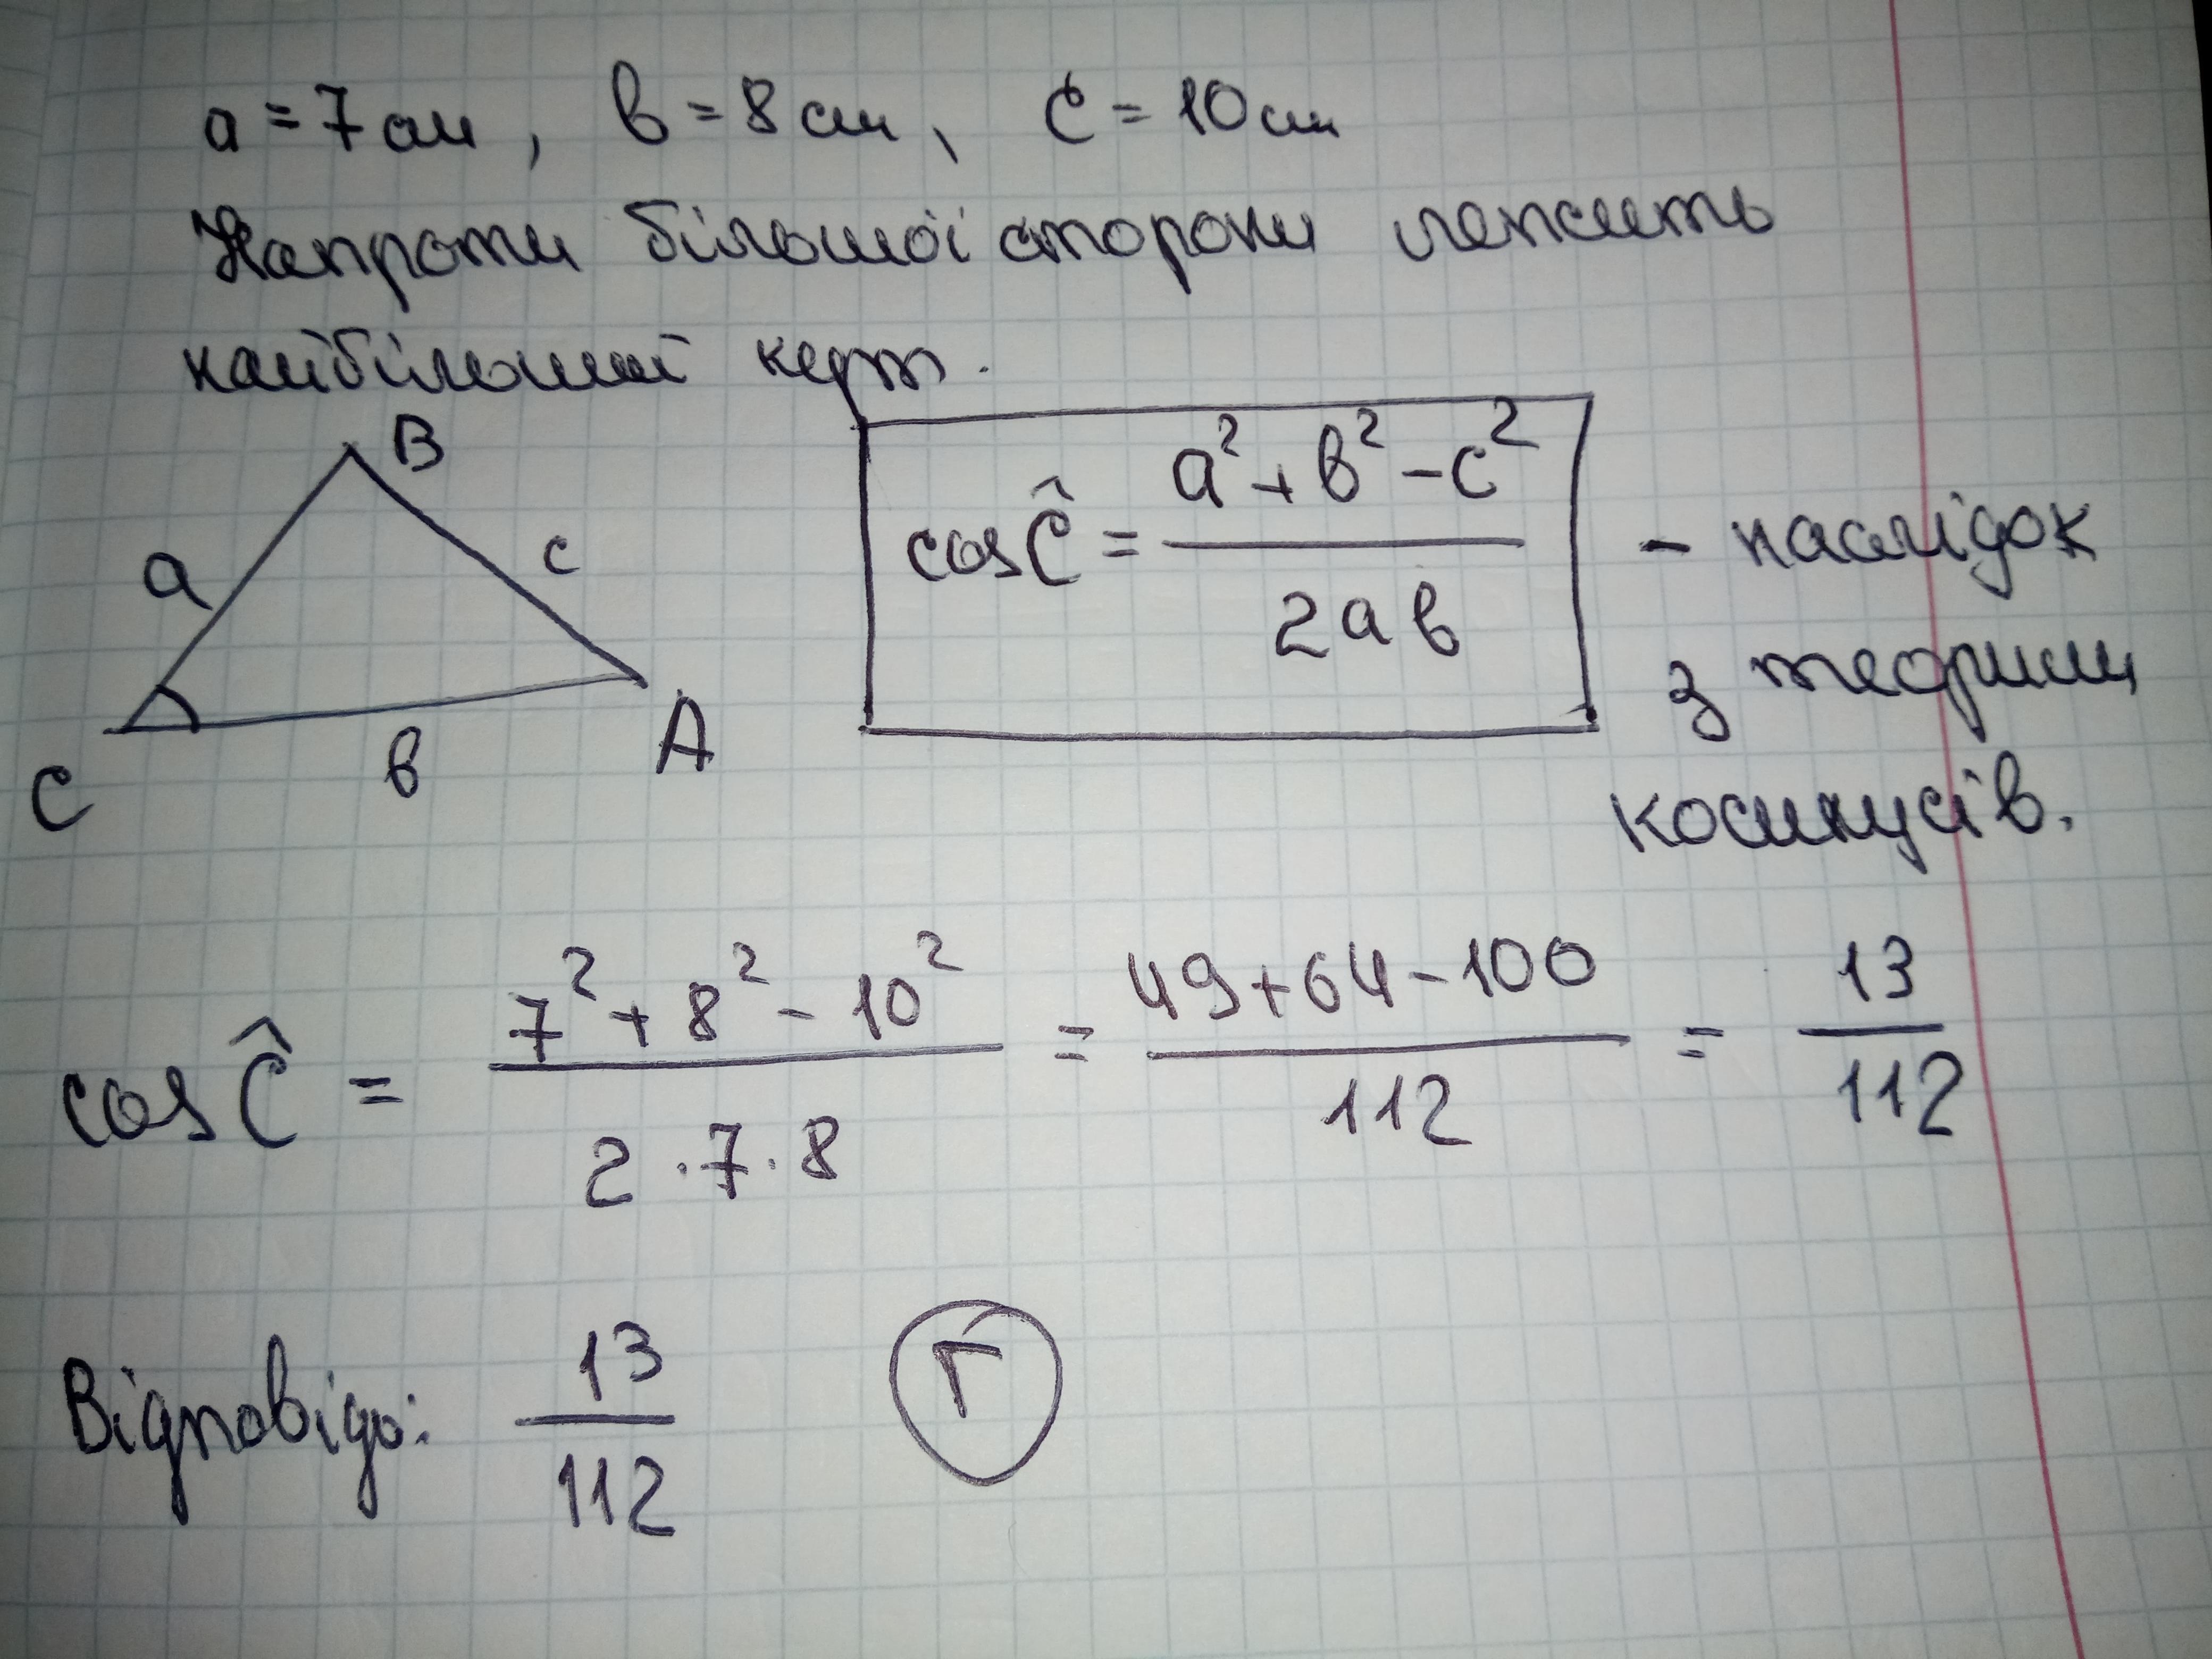 a = 7 см, в = 8 см, с = 10 см
Напроти більшої сторони лежить
найбільший кут.
B
a
c
C
в
A
cos Ĉ = (a² + в² − c²) / (2ав)
- наслідок
з теореми
косинусів.
cos Ĉ = (7² + 8² − 10²) / (2 · 7 · 8) = (49 + 64 − 100) / 112 = 13 / 112
Відповідь: 13 / 112 Г